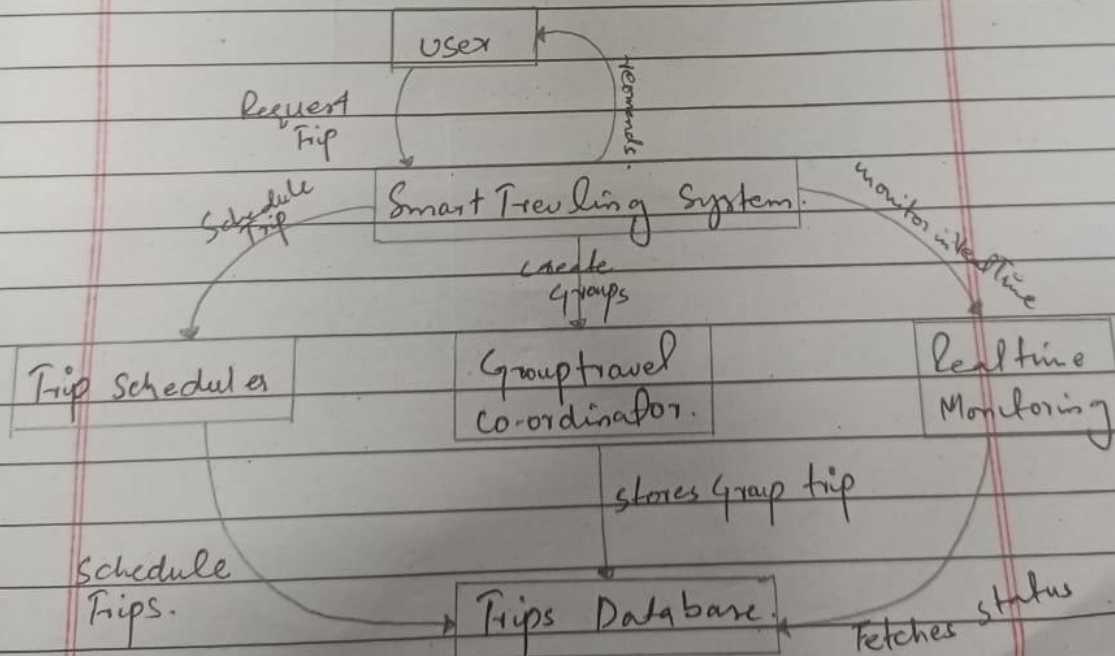 User
Request
Trip
recomends.
Smart Treuling System.
Schedule
Trip
create
Groups
monitor in realtime
Trip Scheduler
Grouptravel
Co-ordinator.
Realtime
Monitoring
stores Group trip
Schedule
Trips.
Trips Database.
Fetches status